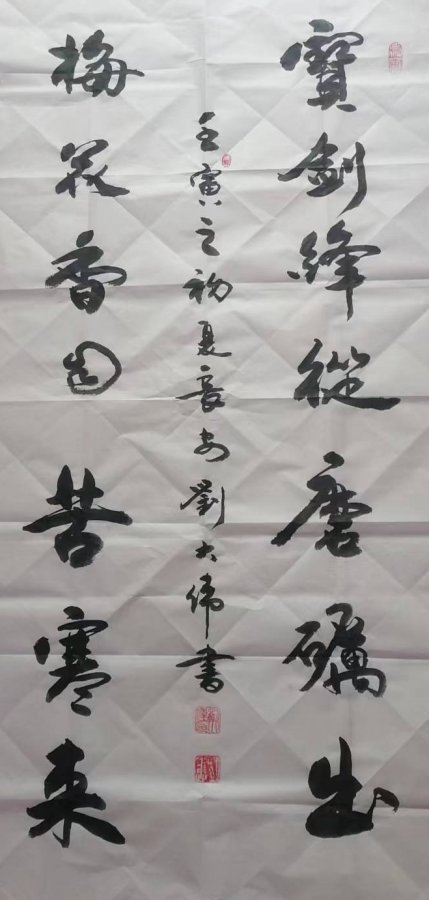 寶劍鋒從磨礪出
梅花香自苦寒來
壬寅之初夏長安劉大偉書